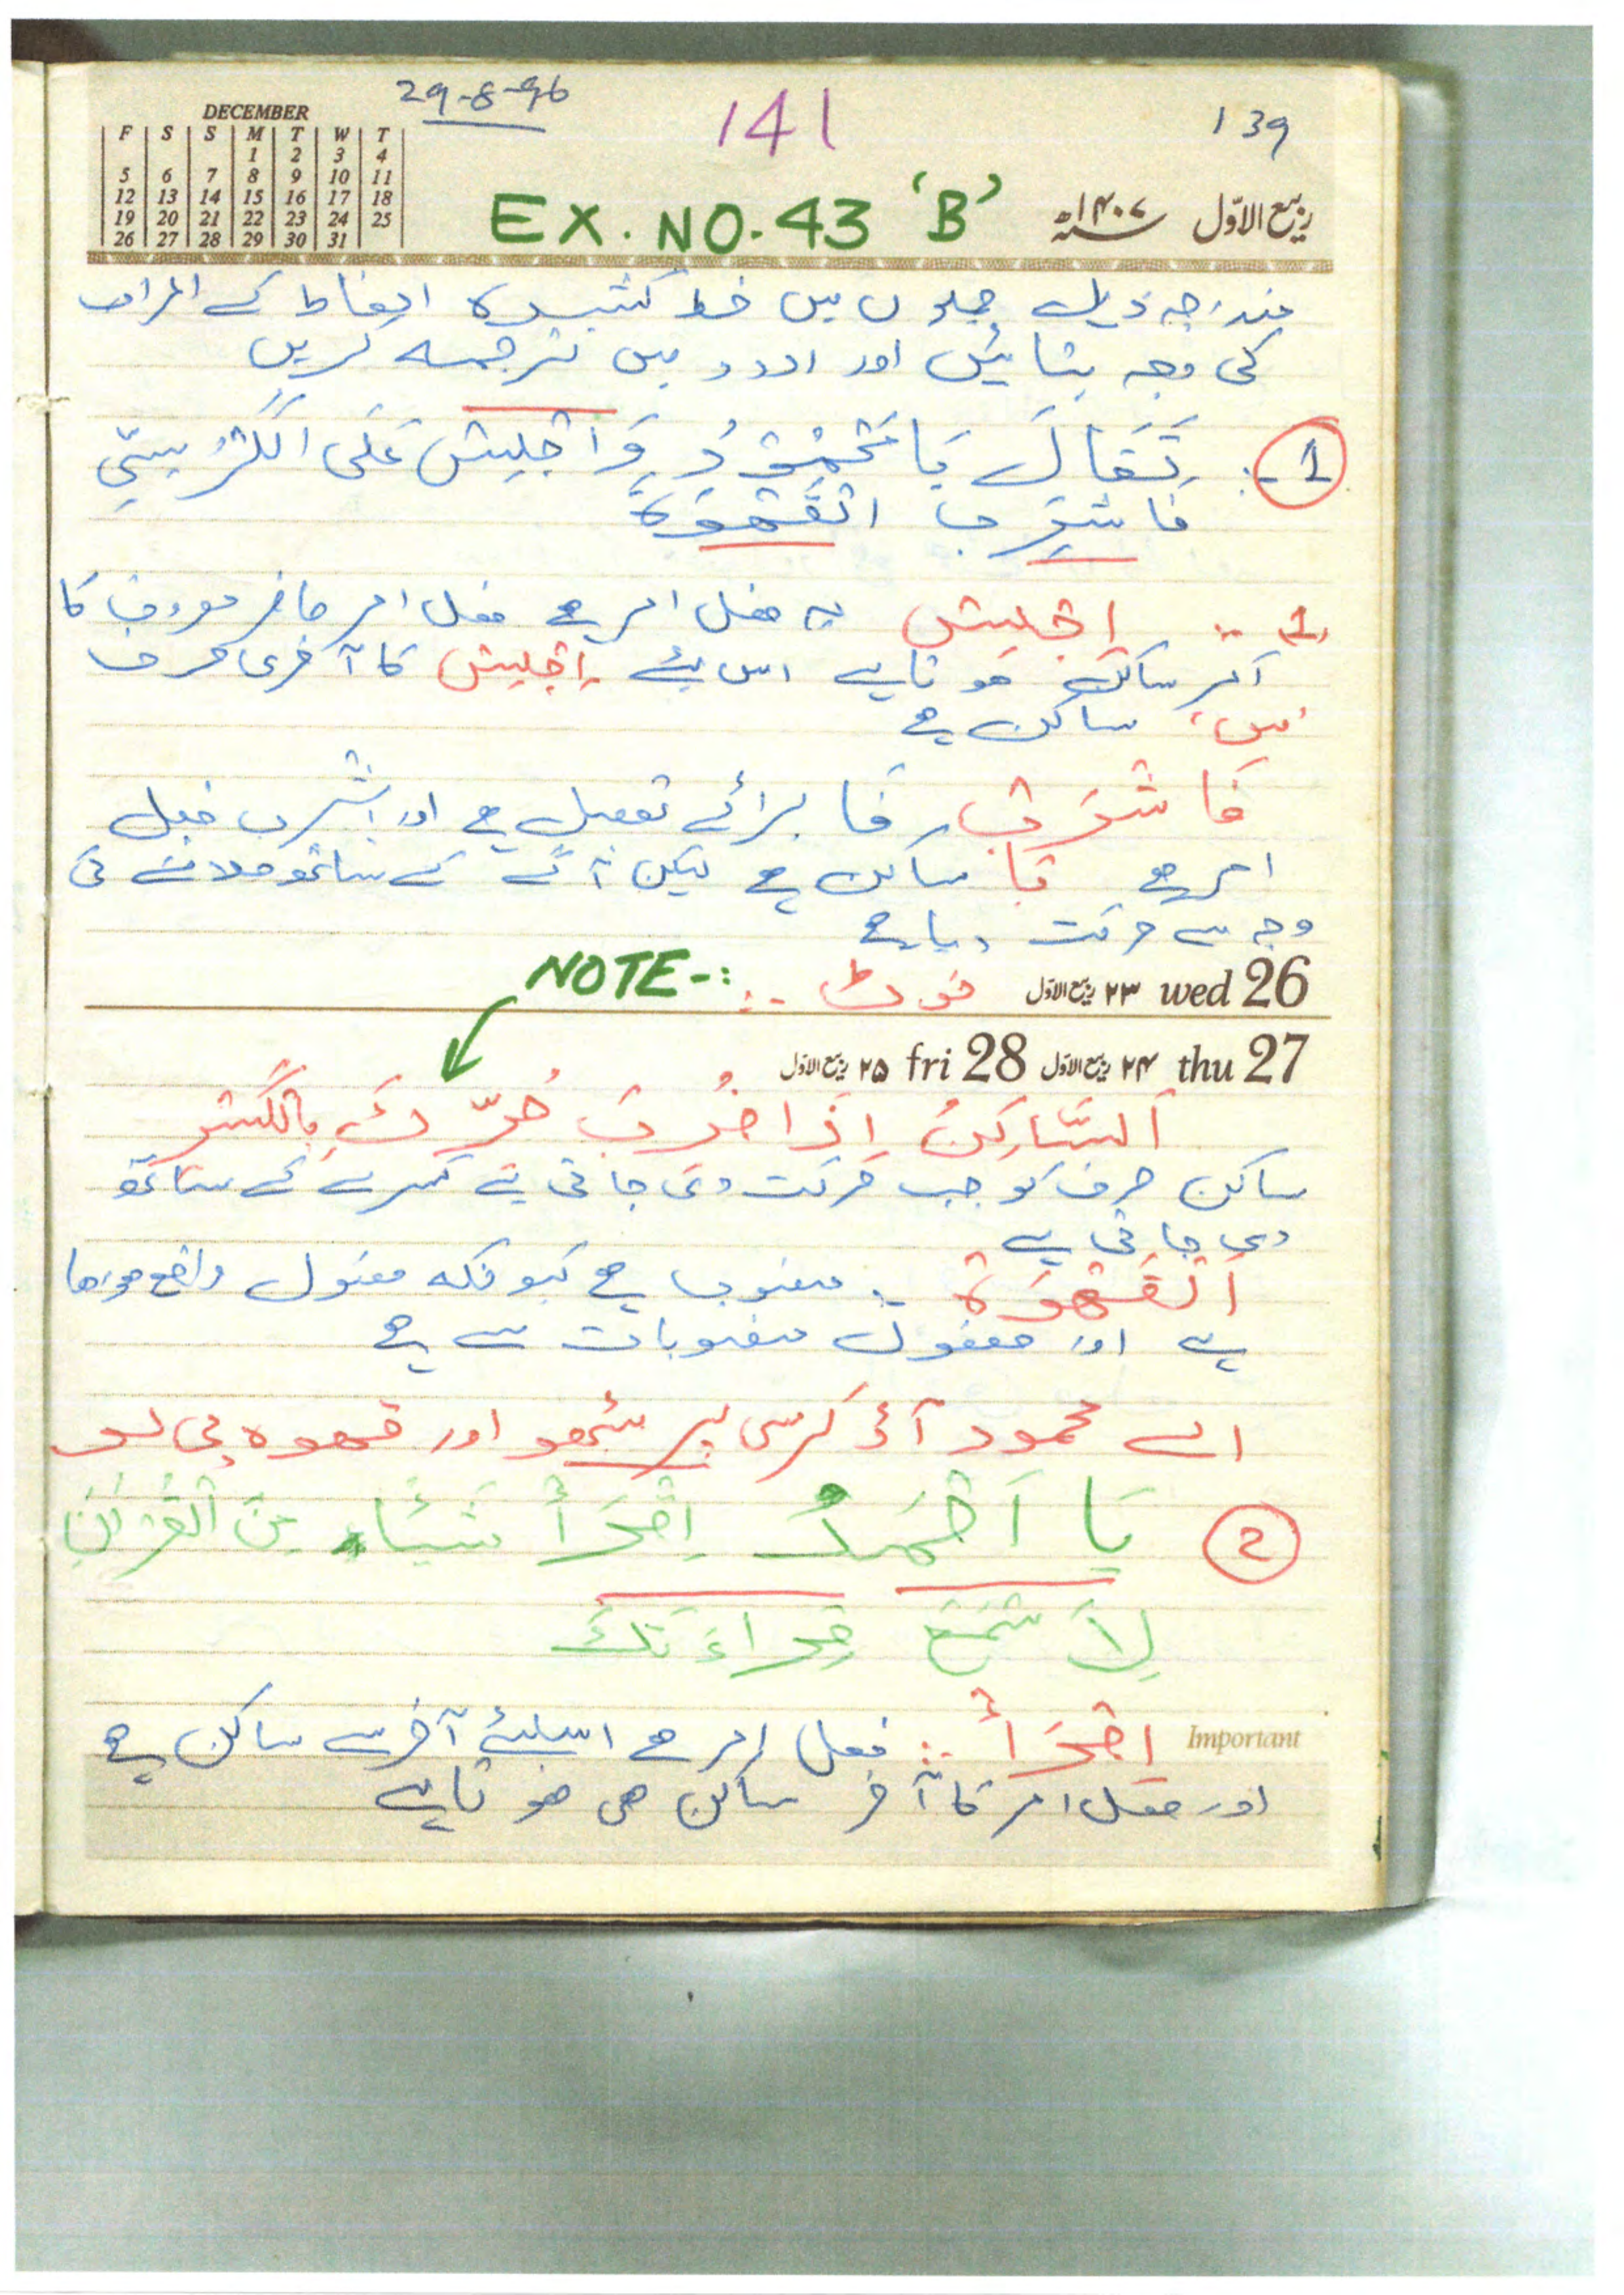 29-8-96
141
139
DECEMBER
F S S M T W T
1 2 3 4
5 6 7 8 9 10 11
12 13 14 15 16 17 18
19 20 21 22 23 24 25
26 27 28 29 30 31
EX. NO. 43 'B'
ربیع الاوّل ۱۴۰۷ھ
مندرجہ ذیل جملوں میں خط کشیدہ الفاظ کے اعراب
کی وجہ بتائیں اور اردو میں ترجمہ کریں
1 تَعَالَ يَا مَحْمُوْدُ وَ اجْلِسْ عَلَى الْكُرْسِيِّ
فَاشْرَبِ الْقَهْوَةَ
1. اجْلِسْ یہ فعل امر ہے فعل امر حاضر معروف کا
آخر ساکن ہوتا ہے اس لئے اِجْلِسْ کا آخری حرف
'س' ساکن ہے
فَاشْرَبِ فا برائے تعمیل ہے اور اشرب فعل
امر ہے با ساکن ہے لیکن آگے کے ساتھ ملانے کی
وجہ سے حرکت دیا ہے
NOTE-: نوٹ
۲۳ ربیع الاوّل wed 26
۲۵ ربیع الاوّل fri 28 ۲۴ ربیع الاوّل thu 27
اَلسَّاكِنُ اِذَا حُرِّكَ حُرِّكَ بِالْكَسْرِ
ساکن حرف کو جب حرکت دی جاتی ہے کسرے کے ساتھ
دی جاتی ہے
اَلْقَهْوَةَ منصوب ہے کیونکہ مفعول واقع ہو رہا
ہے اور مفعول منصوبات سے ہے
اے محمود آؤ کرسی پر بیٹھو اور قہوہ پی لو
2 يَا اَحْمَدُ اِقْرَأْ شَيْئًا مِنَ الْقُرْاٰنِ
لِاَسْمَعَ قِرَاءَتَكَ
Important
اِقْرَأْ فعل امر ہے اسلئے آخر سے ساکن ہے
اور فعل امر کا آخر ساکن ہی ہوتا ہے